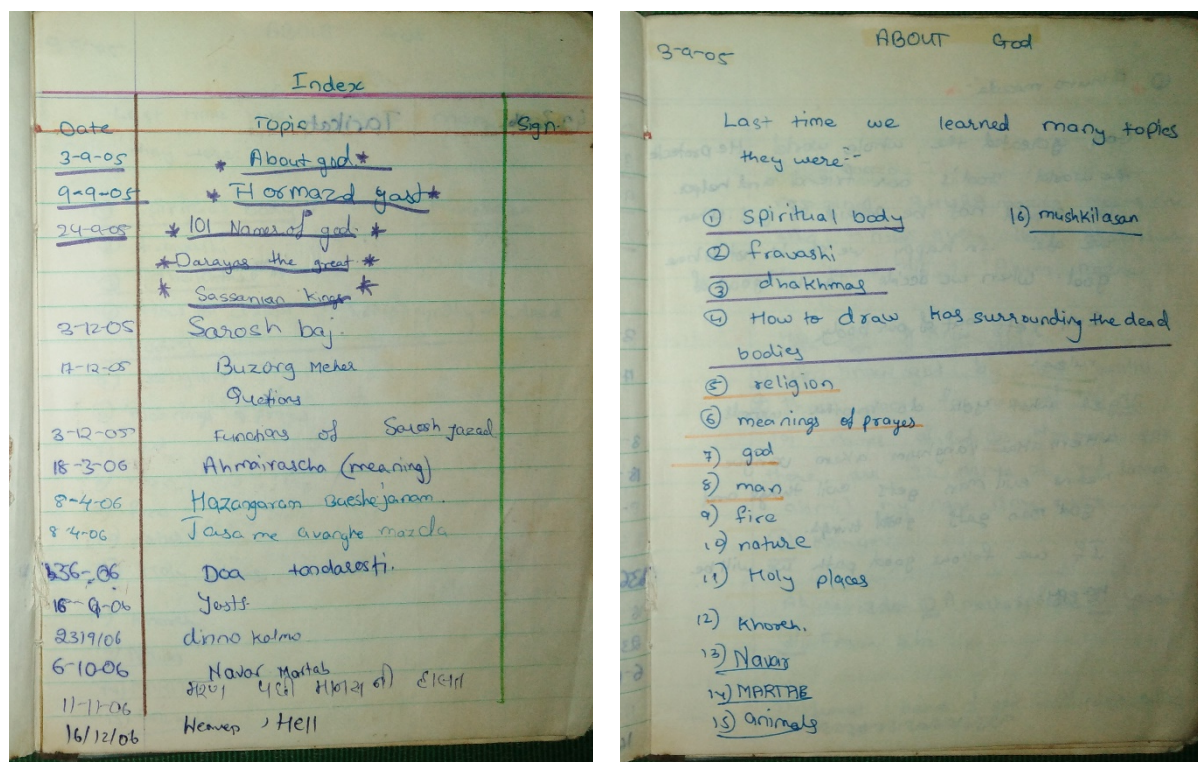 Index
Date Topic Sign.
3-9-05 * About god *
9-9-05 * Hormazd yast *
24-9-05 * 101 Names of god. *
* Darayas the great *
* Sassanian kings *
3-12-05 Sarosh baj.
17-12-05 Buzorg Meher
Quetions
3-12-05 Functions of Sarosh yazad
18-3-06 Ahmairascha (meaning)
8-4-06 Hazangaram Baeshejanam.
8-4-06 Jasa me avanghe mazda
Doa tandarosti.
Yasts.
23/9/06 dinno kalmo
6-10-06 Navar Martab
11-11-06 મરણ પછી માણસ ની હાલત
16/12/06 Heaven, Hell
3-9-05 ABOUT God
Last time we learned many topics
they were:-
① spiritual body 16) mushkilasan
② fravashi
③ dhakhmas
④ How to draw kas surrounding the dead
bodies
⑤ religion
⑥ meanings of prayes
7) god
8) man
9) fire
10) nature
11) Holy places
12) Khoreh.
13) Navar
14) MARTAB
15) animals